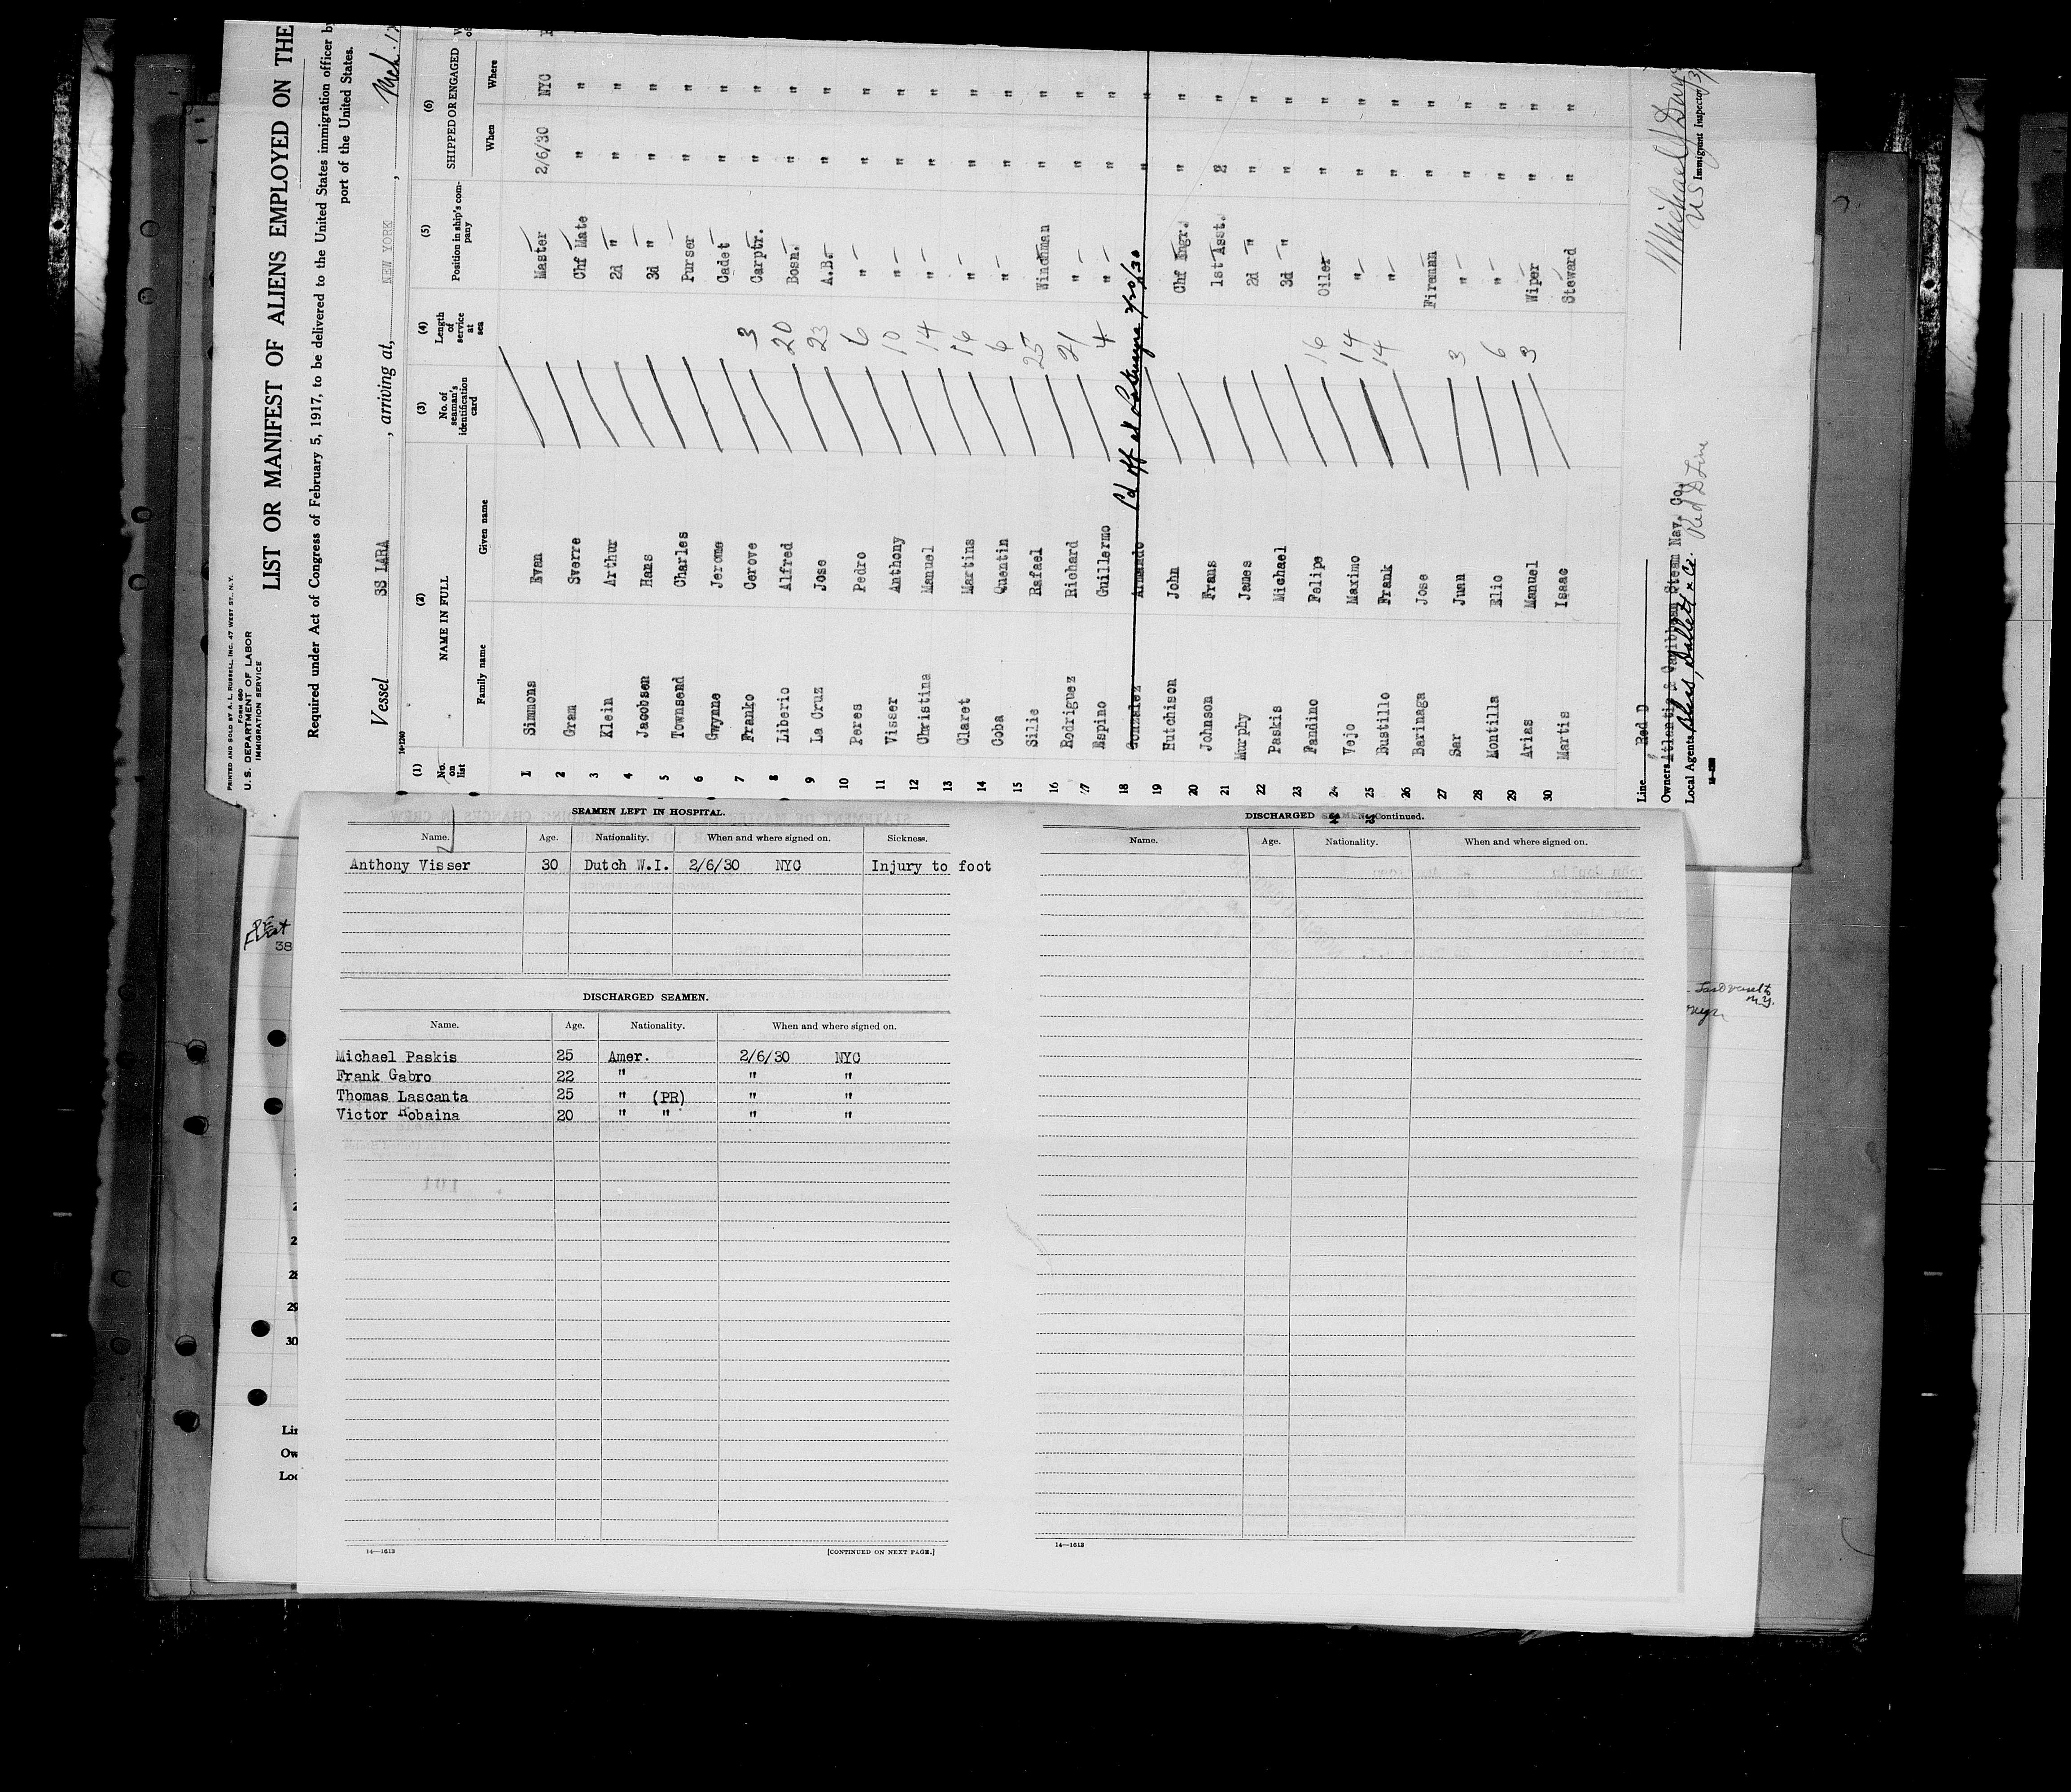 PRINTED AND SOLD BY A. L. RUSSELL, INC. 47 WEST ST., N.Y.
FORM 680
U. S. DEPARTMENT OF LABOR
IMMIGRATION SERVICE
LIST OR MANIFEST OF ALIENS EMPLOYED ON THE
Required under Act of Congress of February 5, 1917, to be delivered to the United States immigration officer by
port of the United States.
Vessel SS LARA , arriving at, NEW YORK , Mch. 12
(1) (2) (3) (4) (5) (6)
No. on list NAME IN FULL No. of seaman's identification card Length of service at sea Position in ship's company SHIPPED OR ENGAGED
Family name Given name When Where
1 Simmons Evan Master 2/6/30 NYC
2 Gram Sverre Chf Mate " "
3 Klein Arthur 2d " " "
4 Jacobsen Hans 3d " " "
5 Townsend Charles Purser " "
6 Gwynne Jerome Cadet " "
7 Franko Cerove 3 Carptr. " "
8 Liberio Alfred 20 Bosn. " "
9 La Cruz Jose 23 A.B. " "
10 Peres Pedro 6 " " "
11 Visser Anthony 10 " " "
12 Christina Manuel 14 " " "
13 Claret Martins 16 " " "
14 Coba Quentin 6 " " "
15 Silie Rafael 25 Winchman " "
16 Rodriguez Richard 21 " " "
17 Espino Guillermo 4 " " "
18 Gonzalez Armando Pd off at 2/20/30 " "
19 Hutchison John Chf Engr. " "
20 Johnson Frans 1st Asst. " "
21 Murphy James 2d " " "
22 Paskis Michael 3d " " "
23 Fandino Felipe 16 Oiler " "
24 Vejo Maximo 14 " " "
25 Bustillo Frank 14 " " "
26 Barinaga Jose Firemann " "
27 Sar Juan 3 " " "
28 Montilla Elio 6 " " "
29 Arias Manuel 3 Wiper " "
30 Martis Isaac Steward " "
Line Red D
Owners Atlantic & Caribbean Steam Nav. Co.
Local Agents Bliss, Dallett & Co. Red D Line
US Immigrant Inspector
SEAMEN LEFT IN HOSPITAL.
Name. Age. Nationality. When and where signed on. Sickness.
Anthony Visser 30 Dutch W.I. 2/6/30 NYC Injury to foot
DISCHARGED SEAMEN.
Name. Age. Nationality. When and where signed on.
Michael Paskis 25 Amer. 2/6/30 NYC
Frank Gabro 22 " " "
Thomas Lascanta 25 " (PR) " "
Victor Robaina 20 " " " "
14—1613 [CONTINUED ON NEXT PAGE.]
DISCHARGED SEAMEN—Continued.
Name. Age. Nationality. When and where signed on.
14—1613
38
29
30